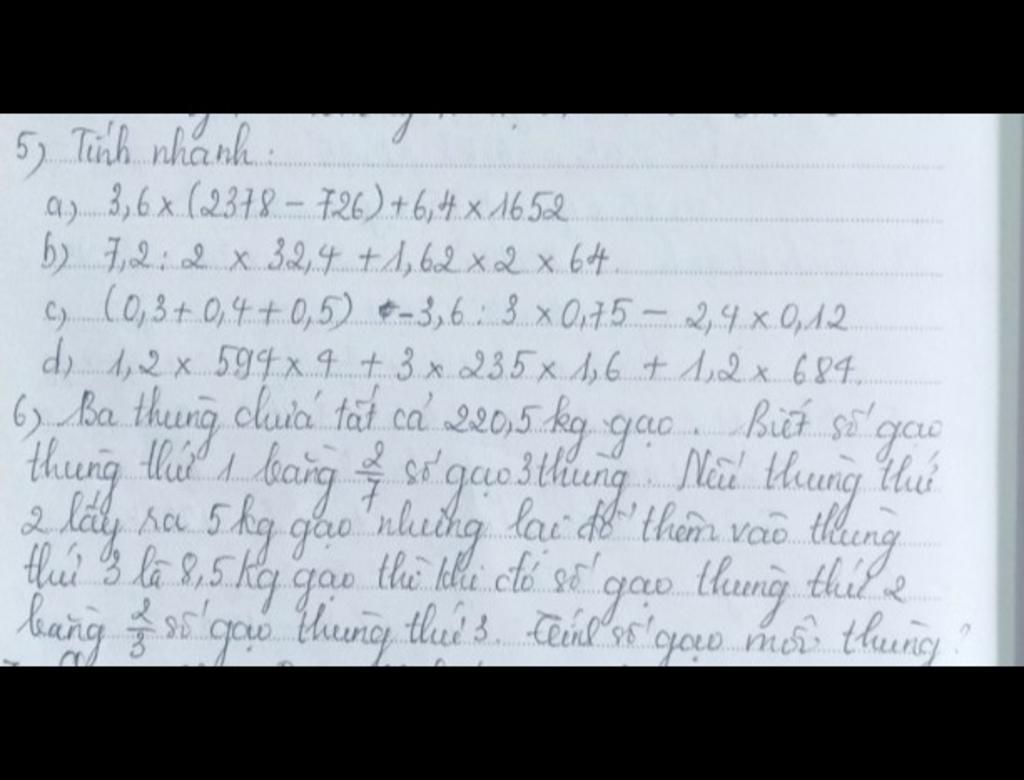 5) Tính nhanh:
a) 3,6 × (2378 - 726) + 6,4 × 1652
b) 7,2 : 2 × 32,4 + 1,62 × 2 × 64.
c) (0,3 + 0,4 + 0,5) - 3,6 : 3 × 0,75 - 2,4 × 0,12
d) 1,2 × 594 × 4 + 3 × 235 × 1,6 + 1,2 × 684.
6) Ba thùng chứa tất cả 220,5 kg gạo. Biết số gạo
thùng thứ 1 bằng 2/7 số gạo 3 thùng. Nếu thùng thứ
2 lấy ra 5 kg gạo nhưng lại đổ thêm vào thùng
thứ 3 là 8,5 kg gạo thì khi đó số gạo thùng thứ 2
bằng 2/3 số gạo thùng thứ 3. Tính số gạo mỗi thùng?